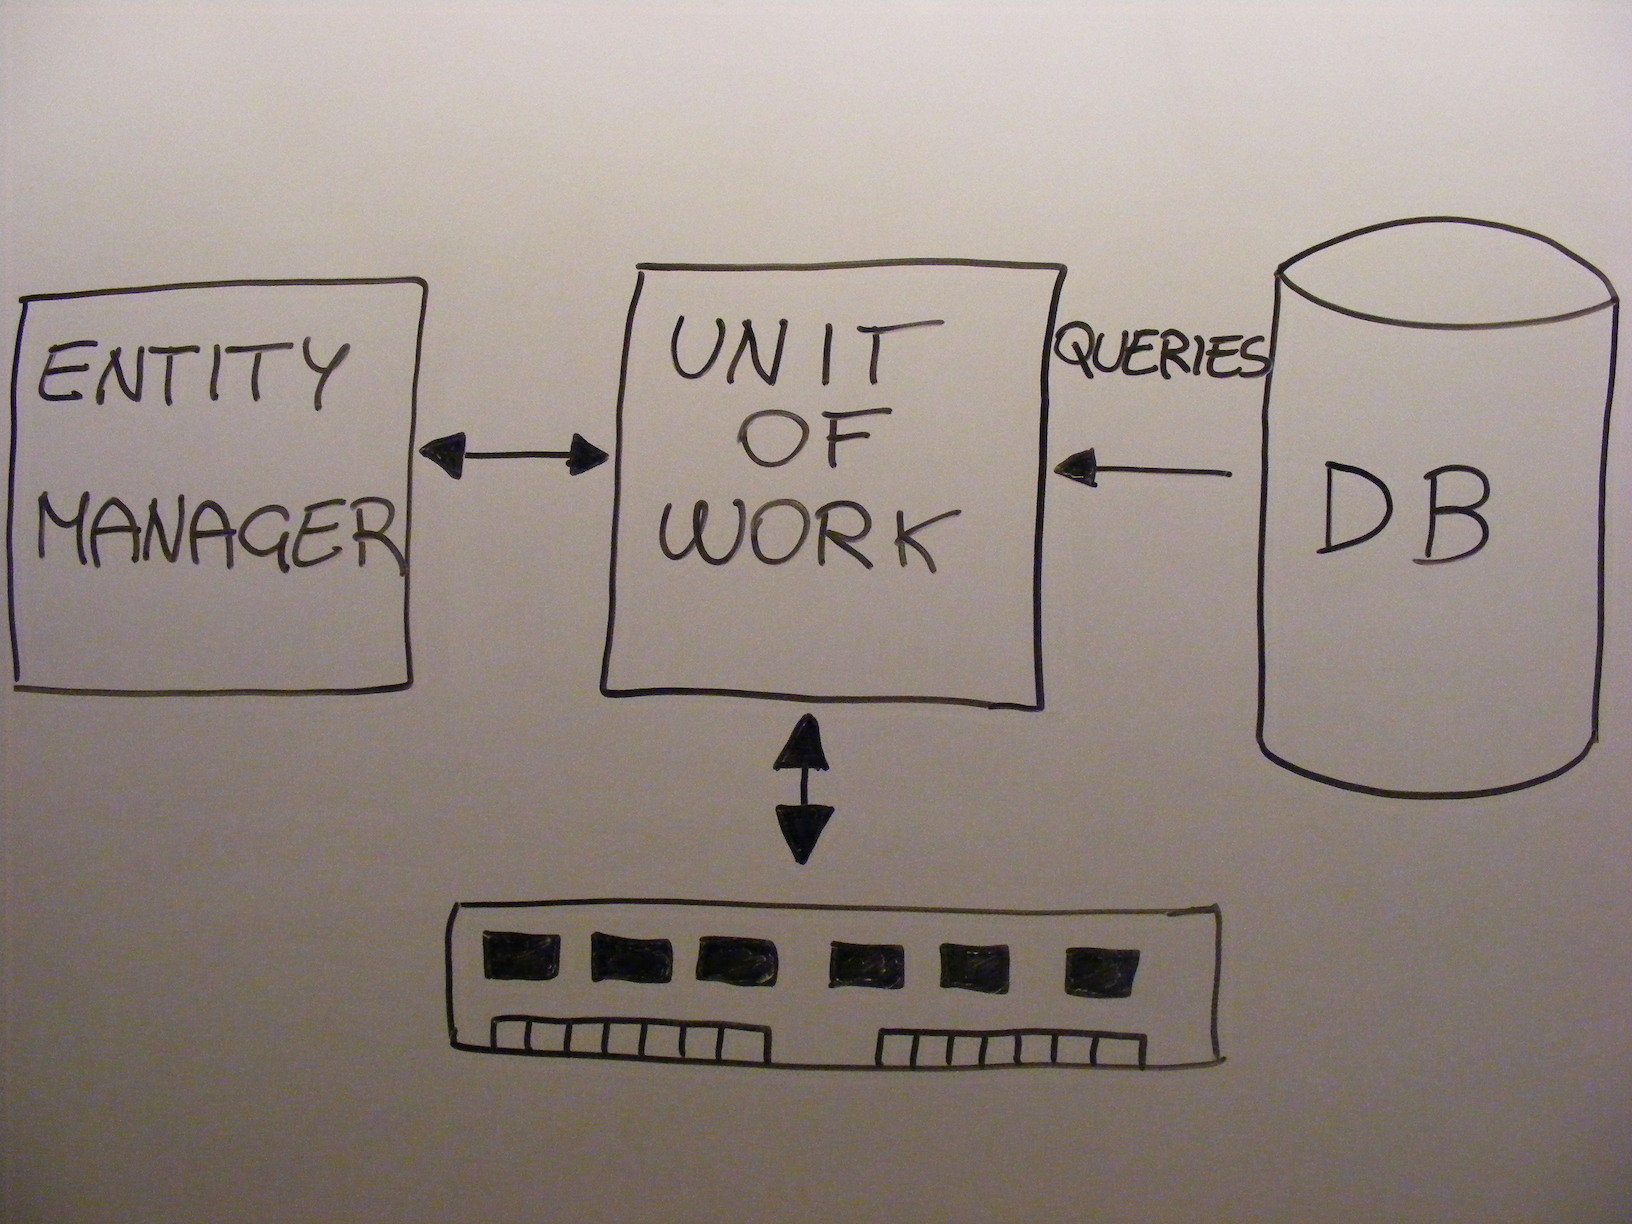 ENTITY
MANAGER
UNIT
OF
WORK
QUERIES
DB